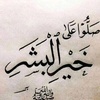 صلوا على
خير البشر